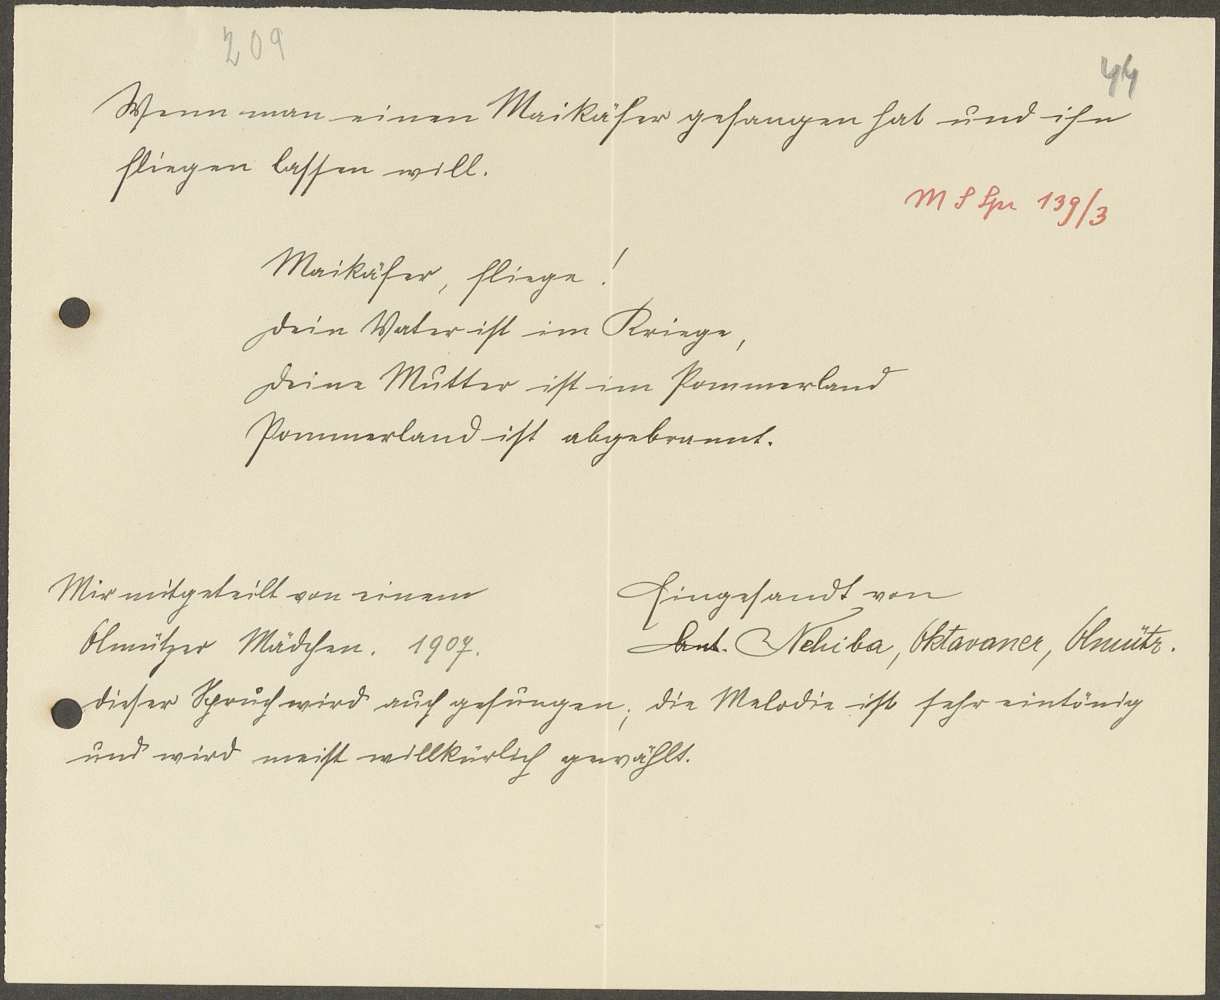 209
44
Wenn man einen Maikäfer gefangen hat und ihn
fliegen lassen will.
M S Spr 139/3
Maikäfer, fliege!
Dein Vater ist im Kriege,
Deine Mutter ist im Pommerland
Pommerland ist abgebrannt.
Mir mitgeteilt von einem
Olmützer Mädchen. 1907.
Eingesandt von
Ant. Nehiba, Oktavaner, Olmütz.
Dieser Spruch wird auch gesungen; die Melodie ist sehr eintönig
und wird meist willkürlich gewählt.